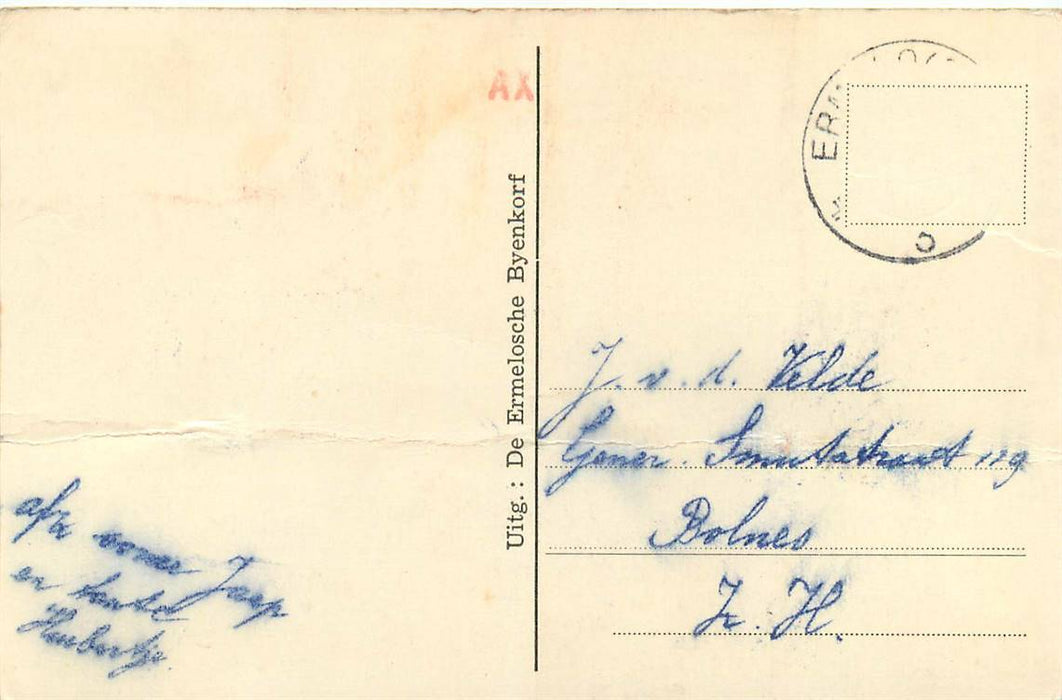 AX
Uitg.: De Ermelosche Byenkorf
J. v. d. Velde
Gener. Smutstraat 119
Bolnes
Z. H.
afz oome Jaap
en tante
Huibertje.